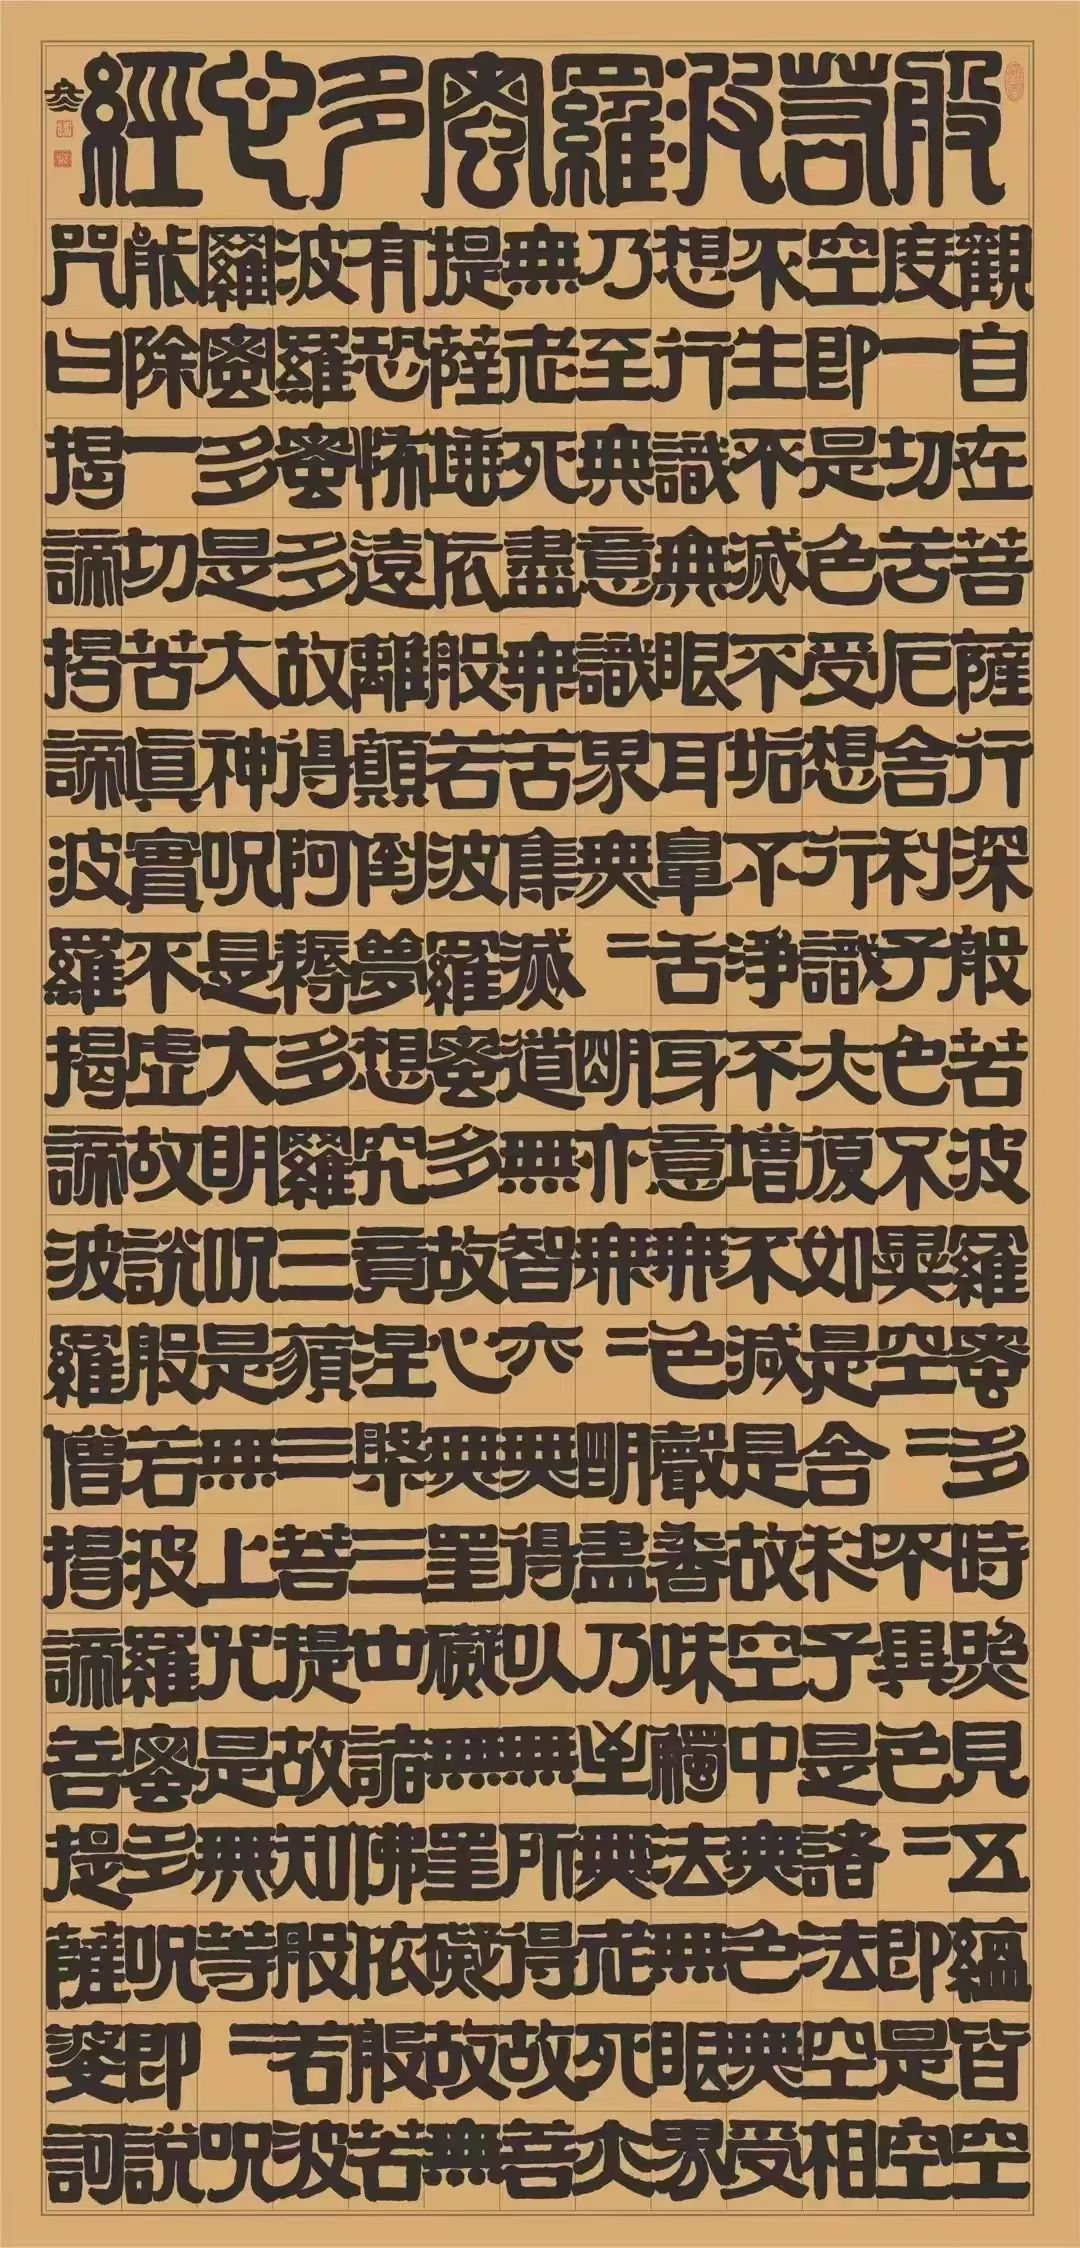 般若波羅蜜多心經
觀自在菩薩行深般若波羅蜜多時照見五蘊皆空
度一切苦厄舍利子色不異空=不異色=即是空
空即是色受想行識亦復如是舍利子是諸法空相
不生不滅不垢不淨不增不減是故空中無色無受
想行識無眼耳鼻舌身意無色聲香味觸法無眼界
乃至無意識界無=明亦無=明盡乃至無老死亦
無老死盡無苦集滅道無智亦無得以無所得故菩
提薩埵依般若波羅蜜多故心無罣礙無罣礙故無
有恐怖遠離顛倒夢想究竟涅槃三世諸佛依般若
波羅蜜多故得阿耨多羅三藐三菩提故知般若波
羅蜜多是大神呪是大明呪是無上咒是無等=呪
能除一切苦眞實不虛故說般若波羅蜜多呪即說
咒曰揭諦揭諦波羅揭諦波羅僧揭諦菩提薩婆訶